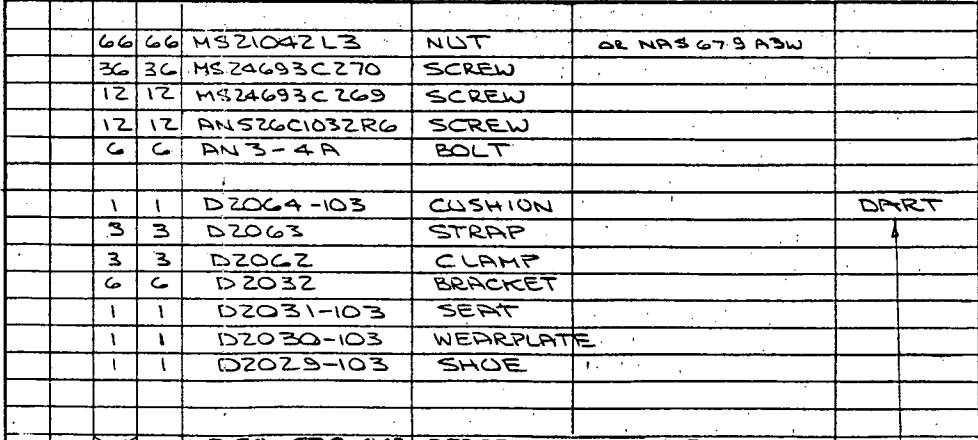 66 66 MS21042L3 NUT OR NAS679A3W
36 36 MS24693C270 SCREW
12 12 MS24693C269 SCREW
12 12 AN526C1032R6 SCREW
6 6 AN3-4A BOLT
1 1 D2064-103 CUSHION DART
3 3 D2063 STRAP
3 3 D2062 CLAMP
6 6 D2032 BRACKET
1 1 D2031-103 SEAT
1 1 D2030-103 WEARPLATE
1 1 D2029-103 SHOE